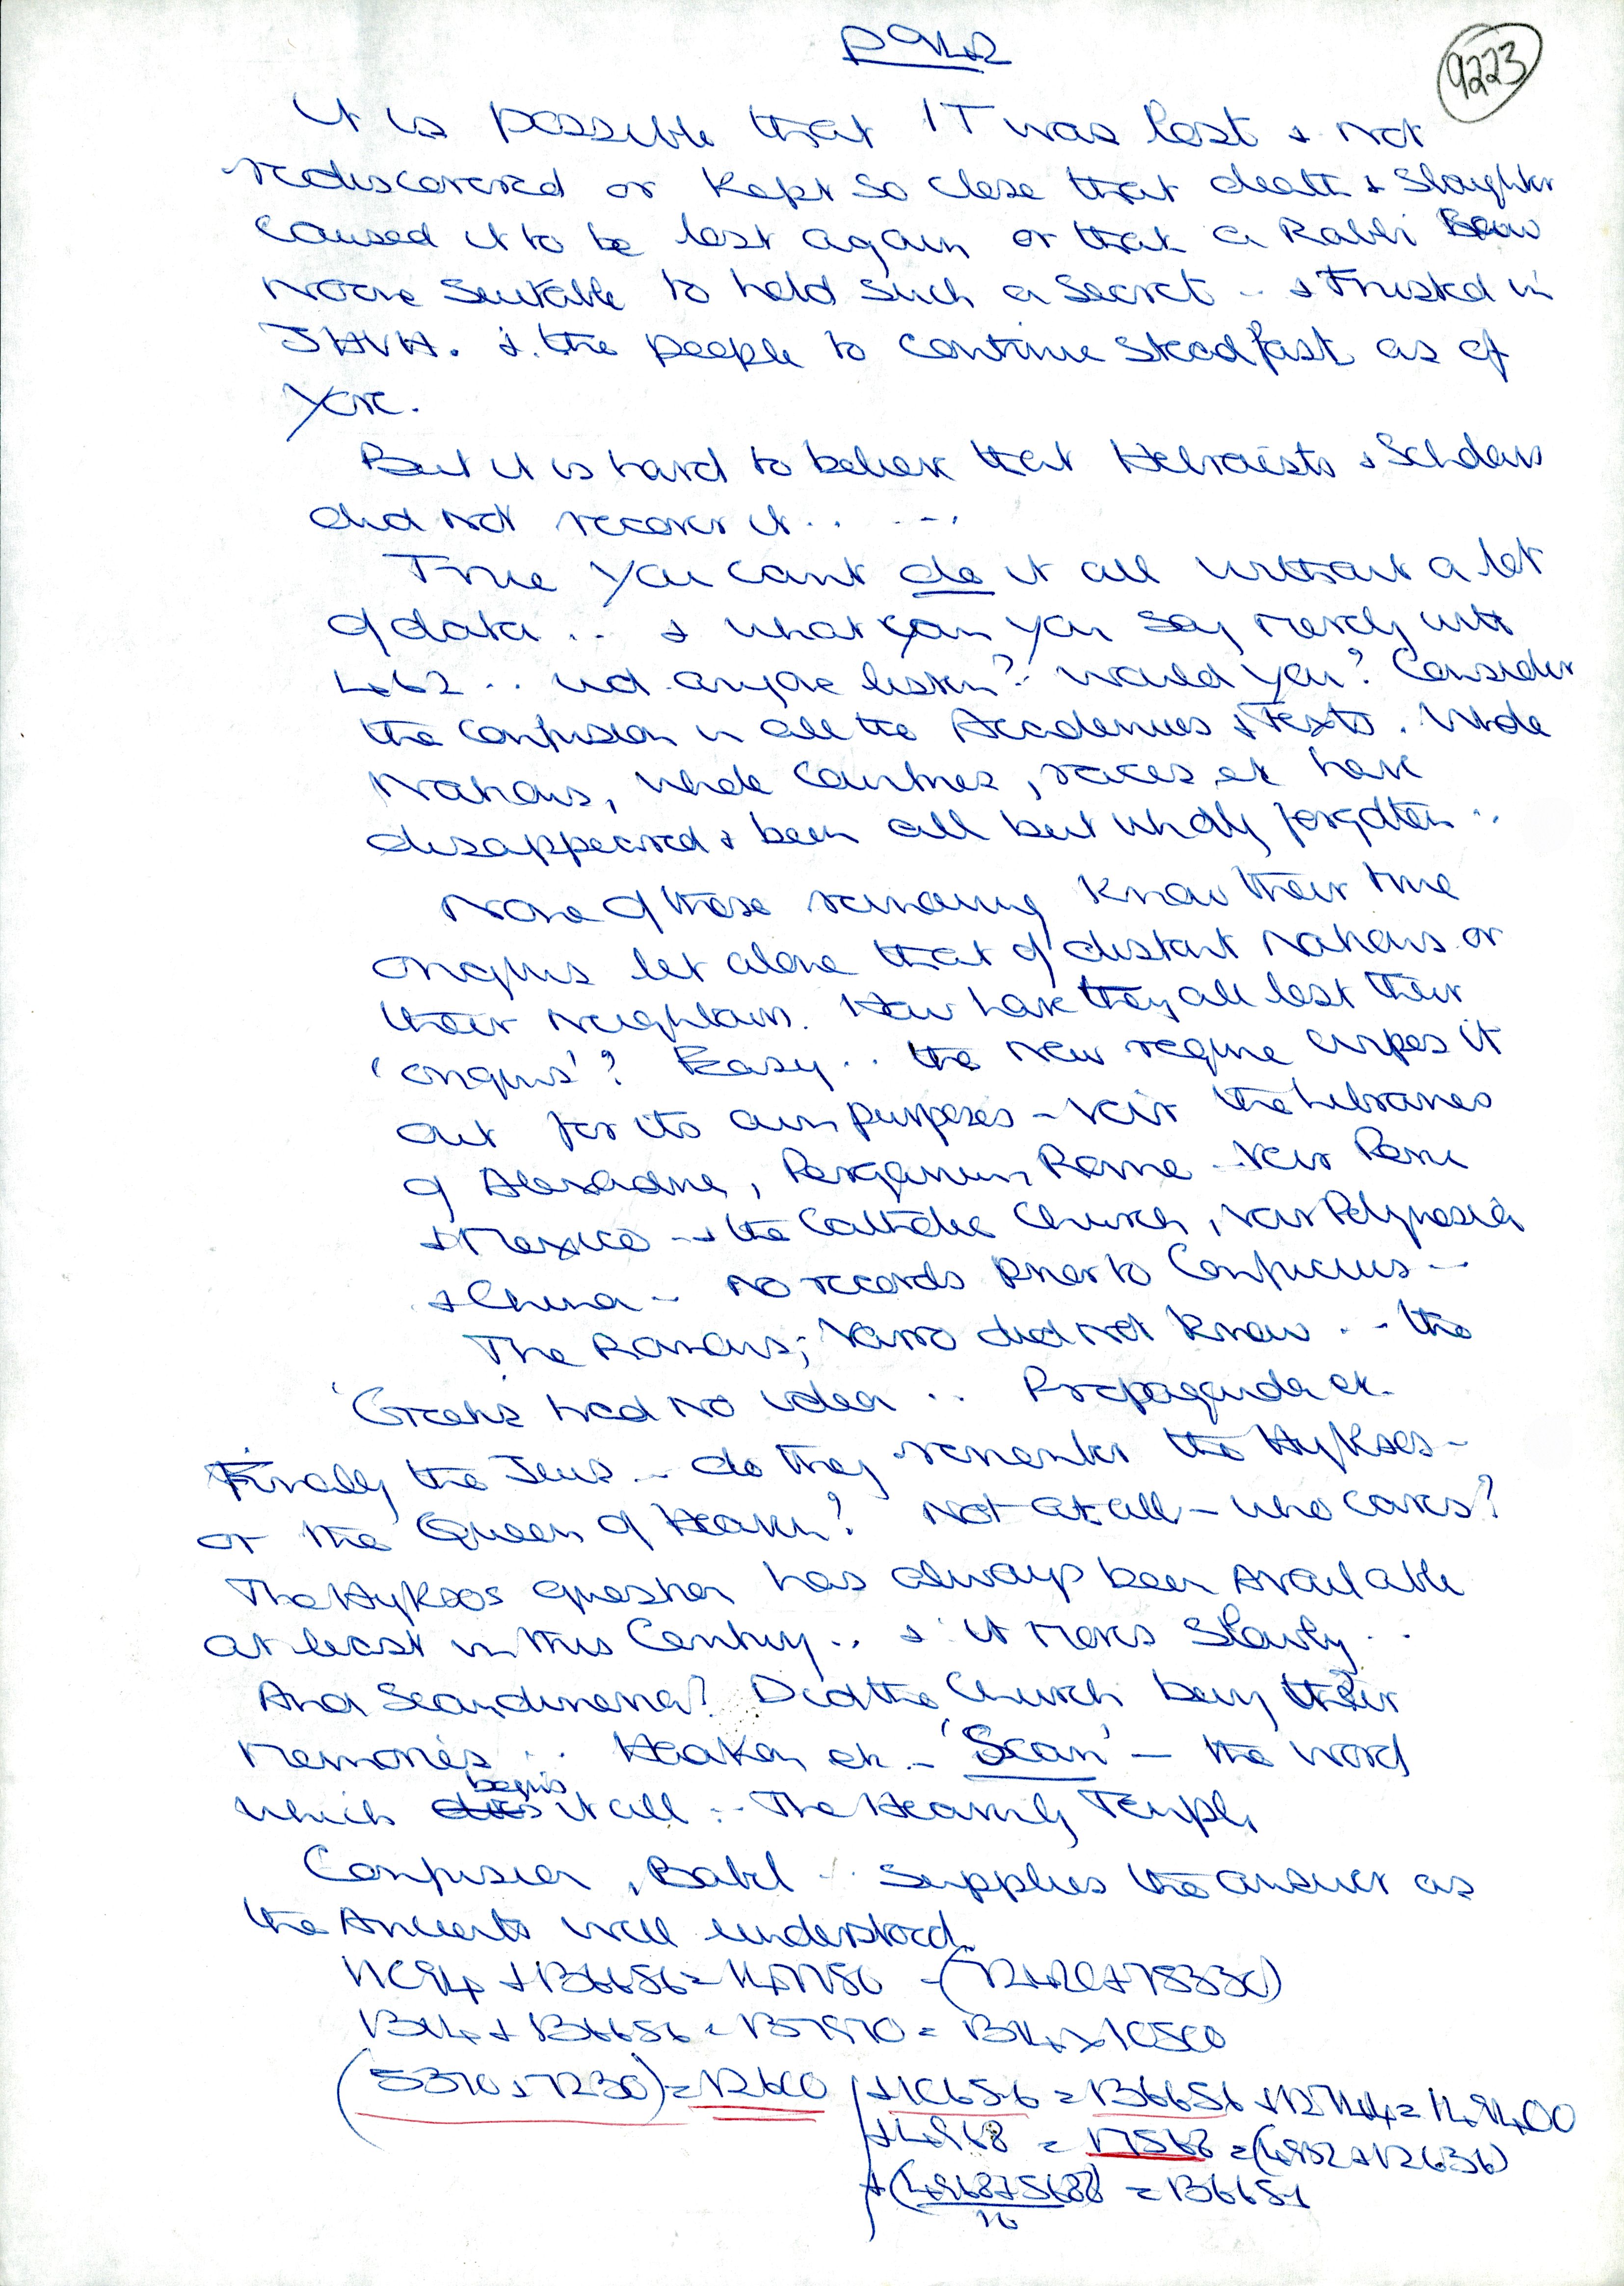 9223
It is possible that IT was lost & not
rediscovered or kept so close that death & slaughter
caused it to be lost again or that a Rabbi
Noone suitable to hold such a secret .. & Trusted in
JHVH. & the people to continue steadfast as of
yore.
But it is hard to believe that Hebraists & Scholars
did not recover it.. ...
True you cant do it all without a lot
of data .. & what can you say merely with
anyone listen? Would you? Consider
the confusion in all the Academies & Texts. Whole
Nations, whole countries, races etc have
disappeared & been all but wholly forgotten ..
None of those remaining know their true
origins let alone that of distant Nations or
their neighbours. How have they all lost their
'origins'? Easy .. the new regime wipes it
out for its own purposes - the Libraries
of Alexandria, Pergamum Rome .. Peru
& Mexico - & the Catholic Church, Polynesia
& China - No records prior to Confucius --
The Romans; Varro did not know .. the
Greeks had no idea .. Propaganda etc.
Finally the Jews .. do they remember the Hyksos -
or the Queen of Heaven? Not at all - who cares?
The Hyksos question has always been available
at least in this Century .. & it moves slowly ..
And Scandinavia? Did the Church bury their
memories .. Heathen etc - 'Scan' - the word
which does begins it all .. The Heavenly Temple
Confusion, Babel .. supplies the answer as
the Ancients well understood.
(5370 + 7230) = 12600